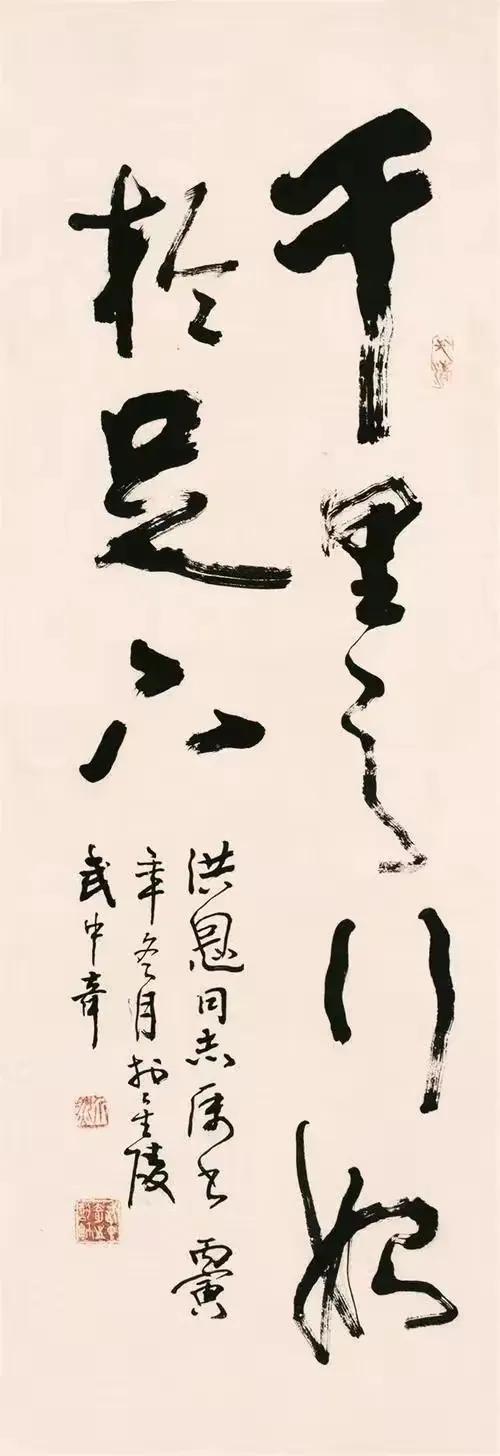 千里之行始
於足下
洪恩同志属书 丙寅
年冬月於金陵
武中奇